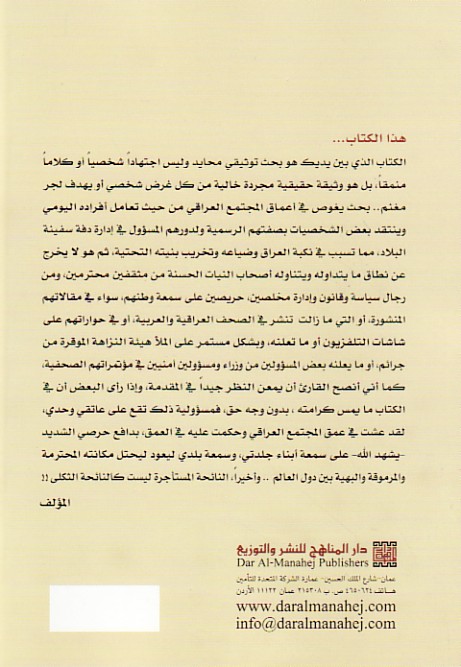 هذا الكتاب...
الكتاب الذي بين يديك هو بحث توثيقي محايد وليس اجتهاداً شخصياً أو كلاماً
منمقاً، بل هو وثيقة حقيقية مجردة خالية من كل غرض شخصي أو يهدف لجر
مغنم.. بحث يغوص في أعماق المجتمع العراقي من حيث تعامل أفراده اليومي
وينتقد بعض الشخصيات بصفتهم الرسمية ولدورهم المسؤول في إدارة دفة سفينة
البلاد، مما تسبب في نكبة العراق وضياعه وتخريب بنيته التحتية، ثم هو لا يخرج
عن نطاق ما يتداوله ويتناوله أصحاب النيات الحسنة من مثقفين محترمين، ومن
رجال سياسة وقانون وإدارة مخلصين، حريصين على سمعة وطنهم، سواء في مقالاتهم
المنشورة، أو التي ما زالت تنشر في الصحف العراقية والعربية، أو في حواراتهم على
شاشات التلفزيون أو ما تعلنه، وبشكل مستمر على الملأ هيئة النزاهة الموقرة من
جرائم، أو ما يعلنه بعض المسؤولين من وزراء ومسؤولين أمنيين في مؤتمراتهم الصحفية،
كما أني أنصح القارئ أن يمعن النظر جيداً في المقدمة، وإذا رأى البعض أن في
الكتاب ما يمس كرامته ، بدون وجه حق، فمسؤولية ذلك تقع على عاتقي وحدي،
لقد عشت في عمق المجتمع العراقي وحكمت عليه في العمق، بدافع حرصي الشديد
-يشهد الله- على سمعة أبناء جلدتي، وسمعة بلدي ليعود ليحتل مكانته المحترمة
والمرموقة والبهية بين دول العالم .. وأخيراً، النائحة المستأجرة ليست كالنائحة الثكلى !!
المؤلف
دار المناهج للنشر والتوزيع
Dar Al-Manahej Publishers
عمان-شارع الملك الحسين- عمارة الشركة المتحدة للتأمين
هاتف ٤٦٥٠٦٢٤ ص. ب ٢١٥٣٠٨ عمان ١١١٢٢ الأردن
www.daralmanahej.com
info@daralmanahej.com